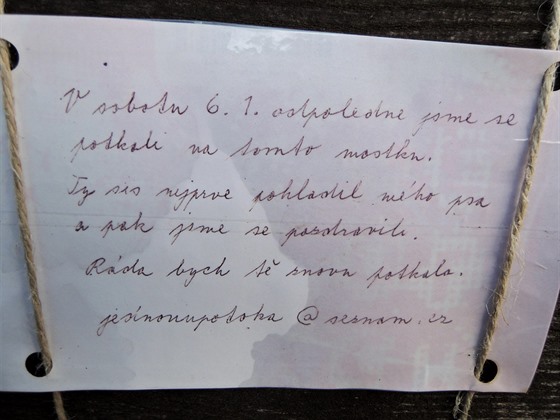 V sobotu 6. 1. odpoledne jsme se
potkali na tomto mostku.
Ty sis nejprve pohladil mého psa
a pak jsme se pozdravili.
Ráda bych tě znovu potkala.
jesinouupotoka @ seznam.cz